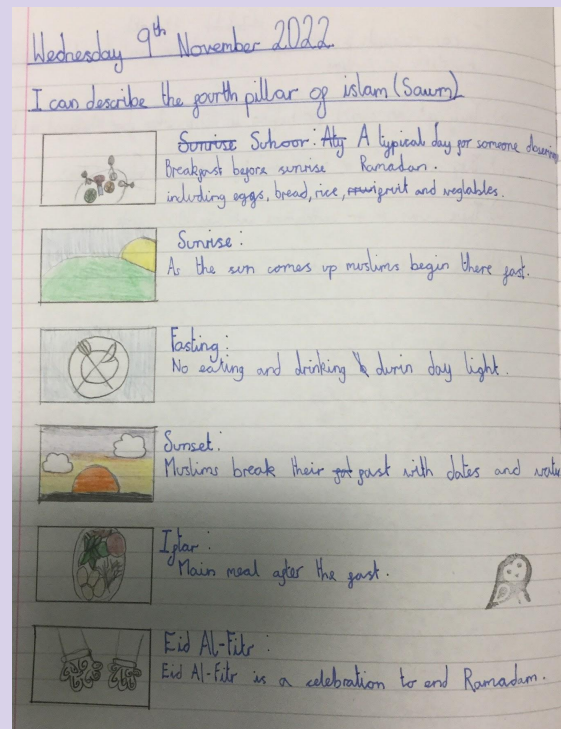 Wednesday 9th November 2022.
I can describe the fourth pillar of islam (Sawm)
Sunrise Suhoor: Aty A typical day for someone
Breakfast before sunrise Ramadan.
including eggs, bread, rice, fruit and vegtables.
Sunrise:
As the sun comes up muslims begin there fast.
Fasting:
No eating and drinking durin day light.
Sunset:
Muslims break their fast with dates and
Iftar:
Main meal after the fast.
Eid Al-Fitr:
Eid Al-Fitr is a celebration to end Ramadam.